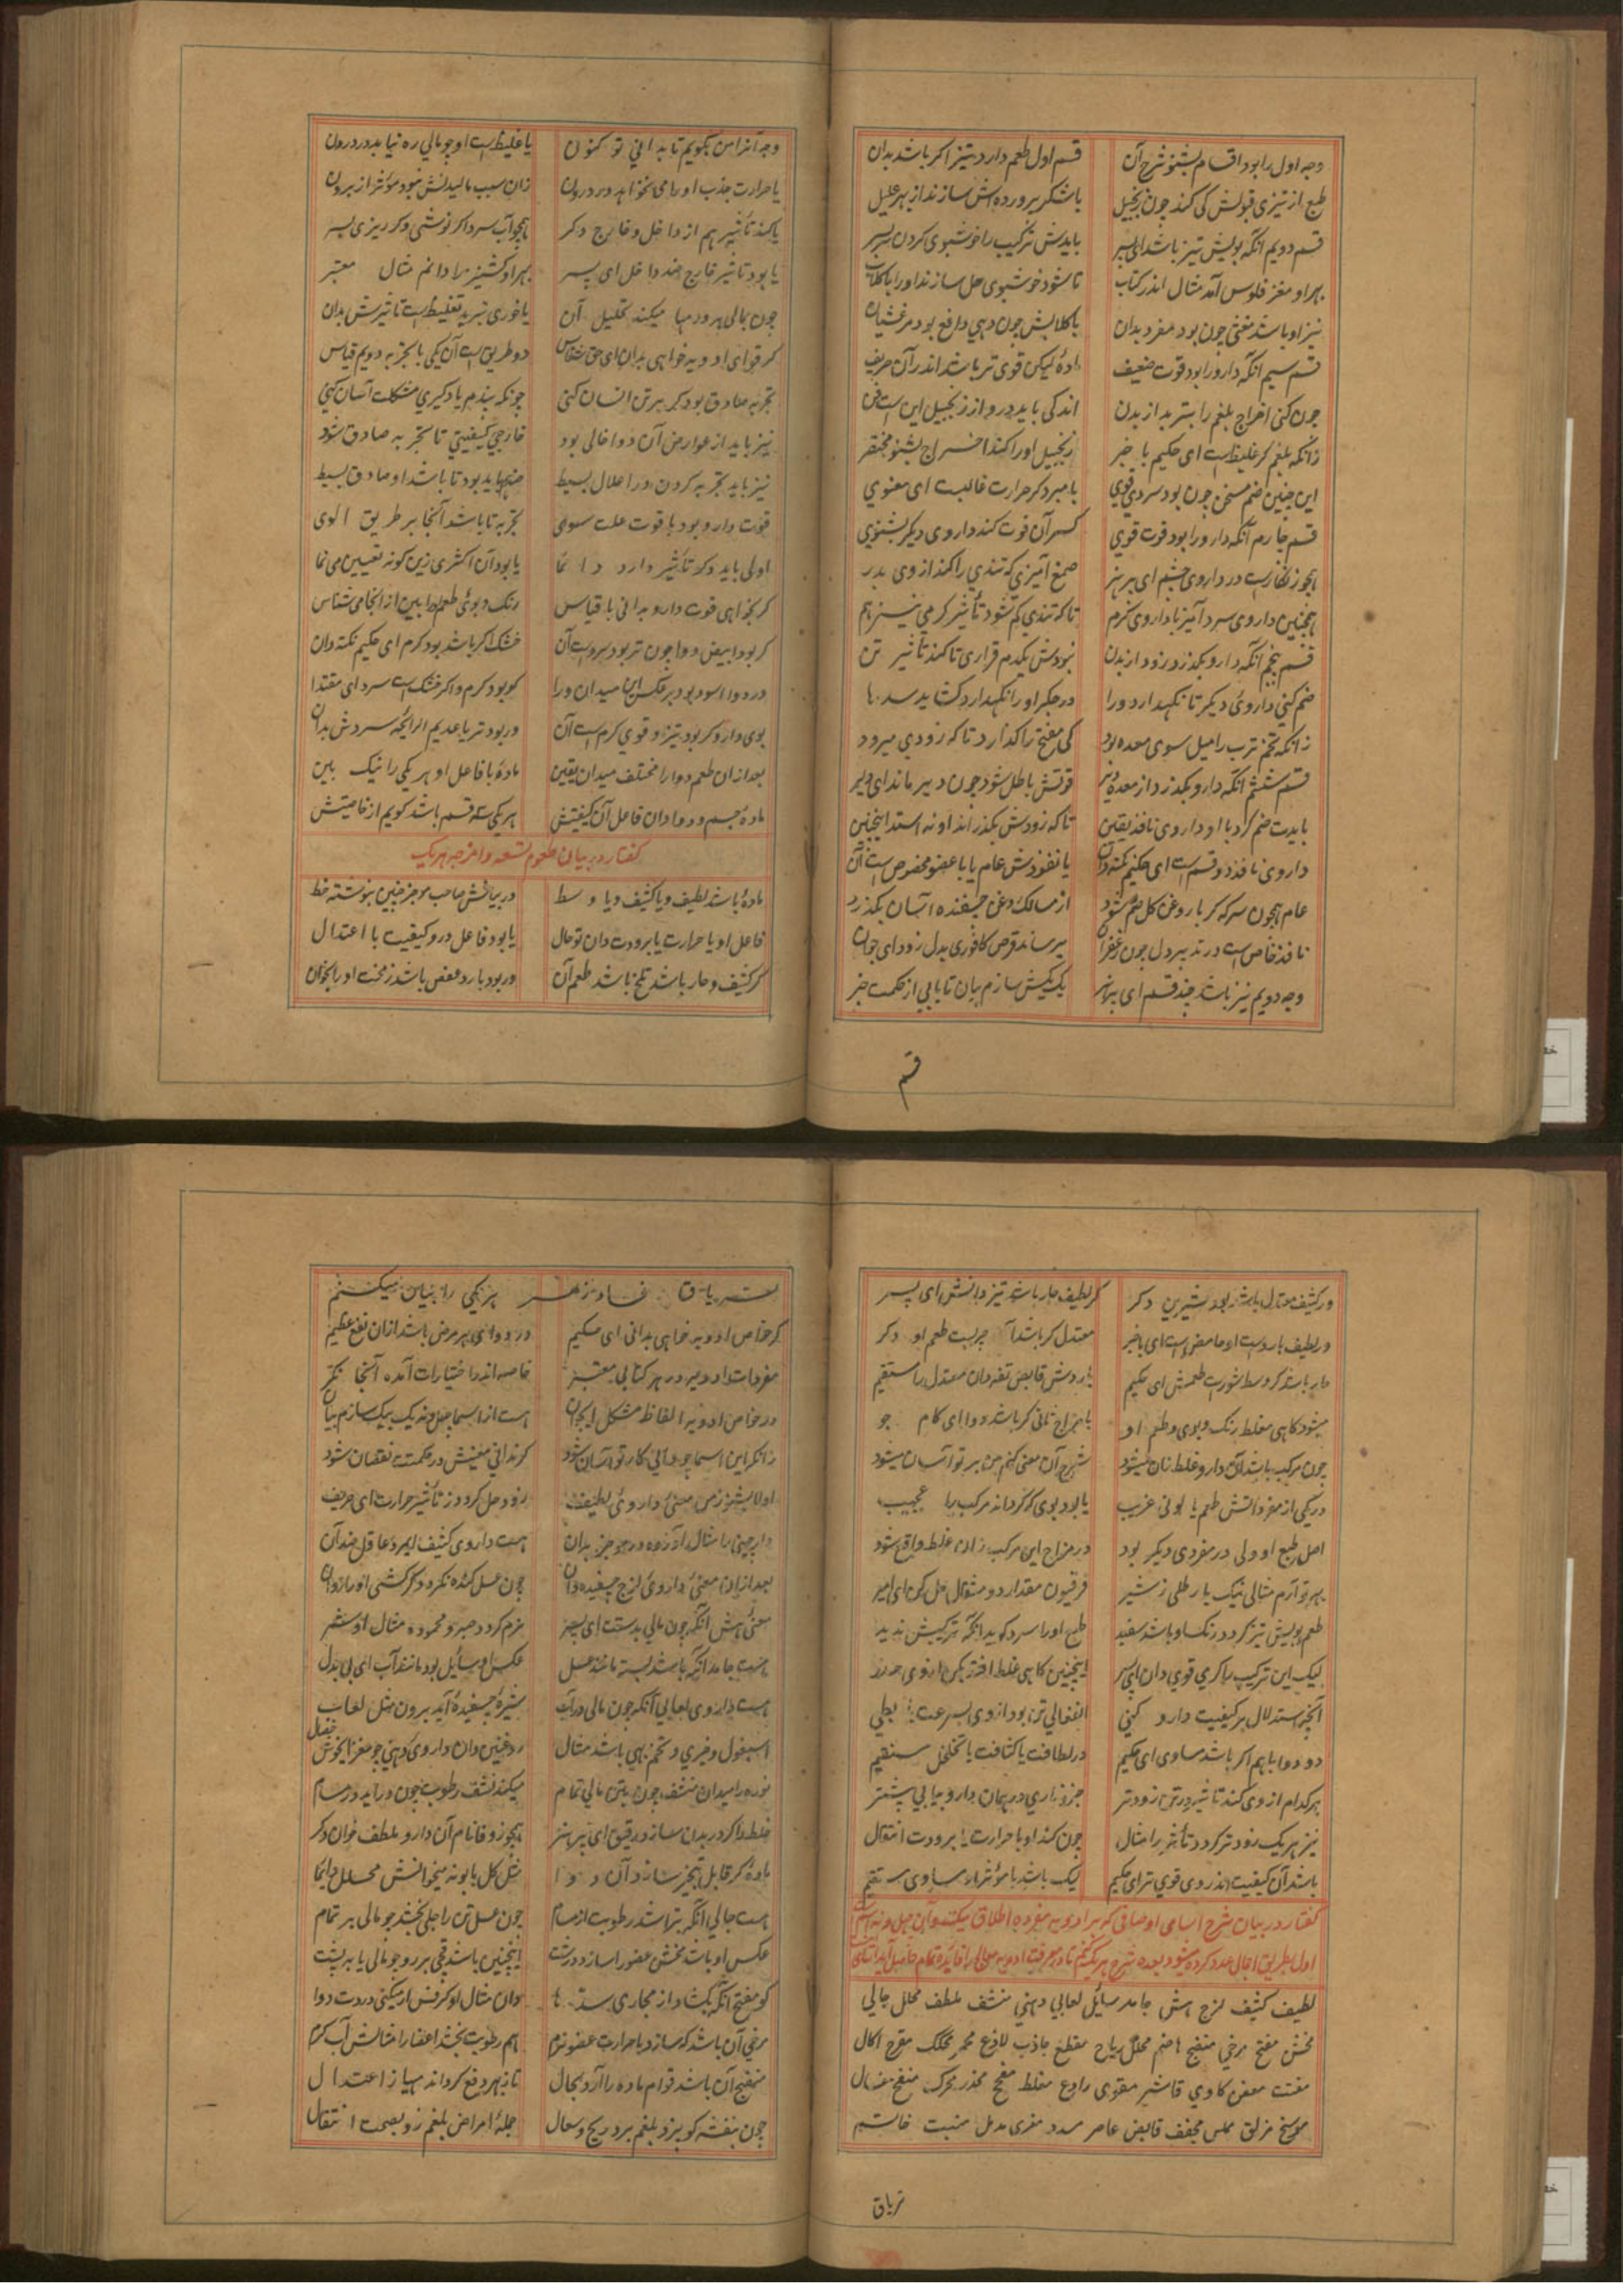 وجه اول را بود اقسام بشنو شرح آن قسم اول طعم دارد تیز اگر باشد بدان
طبع از تیزی قبولش کی کند چون زنجبیل با شکر پرورده اش سازند از بهر علیل
قسم دویم آنکه بویش تیز باشد ای پسر بایدش ترکیب را خوشبوی کردن سربسر
بهر او مغز فلوس آمد مثال اندر کتاب تا شود خوشبوی حل سازند او را با کلاب
نیز او باشد مغثی چون بود مفرد بدان با کلابش چون دهی دافع بود مر غثیان
قسم سیم آنکه دارو را بود قوت ضعیف ماده لیکن قوی تر باشد اندر آن حریف
چون کنی اخراج بلغم را بتربد از بدن اندکی باید درو از زنجبیل این است فن
زانکه بلغم کر غلیظ است ای حکیم با خبر زنجبیل او را کند اخراج بشنو مختصر
این چنین ضم مسخن چون بود سردی قوی با مبرد کر حرارت غالبست ای معنوی
قسم چارم آنکه دارو را بود قوت قوی کسر آن قوت کند داروی دیکر بشنوی
صمغ آمیزی که تندی را کند از وی بدر
همچنین داروی سرد آمیز با داروی کرم تاکه تندی کم شود تأثیر کرمی نیز هم
قسم پنجم آنکه دارو بکذرد زود از بدن نبودش یکدم قراری تا کند تأثیر تن
ضم کنی داروی دیکر تا نکهدارد ورا در جکر او را نکهدارد کشاید سدها
زانکه تخم ترب را میل سوی معده بود کی مفتح را کذارد تا که زودی میرود
قسم ششم آنکه دارو بکذرد از معده دیر قوتش باطل شود چون دیر ماند ای دلیر
بایدت ضم کرد با او داروی نافذ یقین تاکه زودش بکذراند او نه استد اینچنین
داروی نافذ دو قسم است ای حکیم نکته دان یا نفوذش عام یا با عضو مخصوص است آن
عام همچون سرکه کر با روغن کل ضم شود از مسالک روغن چسفنده آسان بکذرد
نافذ خاص است در تدبیر دل چون زعفران میرساند قرص کافوری بدل زود ای جوان
وجه دویم نیز باشد چند قسم ای براسر یک بیکش سازم بیان تا یابی از حکمت خبر
قسم
وجه آنرا من بکویم تا بدانی تو کنون یا غلیظ است او چو مالی ره نیابد در درون
یا حرارت جذب او را می نخواهد در درون زان سبب مالیدنش نبود مؤثر از برون
یا کند تأثیر هم از داخل و خارج دکر همچو آب سرد اکر نوشی وکر ریزی بسر
یا بود تاثیر خارج ضد داخل ای پسر بهر او کشنیز را دانم مثال معتبر
چون بمالی بر ورمها میکند تحلیل آن یا خوری تبرید تغلیظ است تاثیرش بدان
کر قوای ادویه خواهی بدان ای حق شناس دو طریق است آن یکی با تجربه دویم قیاس
تجربه صادق بود کر بر تن انسان کنی چونکه پندم یاد کیری مشکلت آسان کنی
نیز باید از عوارض آن دوا خالی بود خارجی کیفیتی تا تجربه صادق شود
نیز باید تجربه کردن در اعلال بسیط ضدها باید بود تا باشد او صادق بسیط
قوت دارو بود با قوت علت سوی تجربه تا باشد آنجا بر طریق الوی
اولی باید وکر تأثیر دارد دائما یا بود آن اکثری زین کونه تعیین می نما
کر بخواهی قوت دارو بدانی با قیاس رنک و بوی طعم را ببین از انجا می شناس
کر بود ابیض دوا چون تر بود سرد است آن خشک اکر باشد بود کرم ای حکیم نکته دان
در دوا اسود بود برعکس این میدان ورا کو بود کرم و اکر خشک است سرد ای مقتدا
بوی دارو کر بود تیز او قوی کرم است آن ور بود تر یا عدیم الرایحه سردش بدان
بعد از ان طعم دوا را مختلف میدان یقین ماده با فاعل او هر یکی را نیک بین
ماده جسم و دوا دان فاعل آن کیفیتش هر یکی سه قسم باشد کویم از خاصیتش
کفتار در بیان طعوم تسعه و امزجه هریک
ماده باشد لطیف و یا کثیف و یا وسط در بیانش صاحب موجز چنین بنوشته خط
فاعل او یا حرارت یا برودت دان تو حال یا بود فاعل درو کیفیت با اعتدال
کر کثیف و حار باشد تلخ باشد طعم آن ور بود بارد عفص باشد زمخت او را بخوان
ور کثیف معتدل باشد بود شیرین دکر کر لطیف حار باشد تیز دانش ای پسر
ور لطیف بارد است او حامض است ای با خبر معتدل کر باشد آن چربست طعم او دکر
حار باشد کر وسط شور است طعمش ای حکیم باردش قابض تفه دان معتدل را مستقیم
میشود کاهی مغلط رنک و بوی و طعم او با مزاج ثانی کر باشد دوا ای کام جو
شرح آن معنی کنم من بر تو آسان میشود
در یکی از مفرداتش طعم یا لونی غریب یا بود بوی که کرداند مرکب را عجیب
اصل طبع او ولی در مفردی دیکر بود در مزاج این مرکب زان غلط واقع شود
بهر تو آرم مثالی نیک با رطلی ز شیر فرفیون مقدار دو مثقال حل کن ای امیر
طعم بویش تیز کردد رنک او باشد سفید طبع او را سرد کوید آنکه ترکیبش ندید
لیک این ترکیب را کرمی قوی دان ای پسر اینچنین کاهی غلط افتد بکن از وی حذر
آنچه استدلال بر کیفیت دارو کنی انفعالی تر بود از وی بسرعت یا بطی
دو دوا با هم اکر باشد مساوی ای حکیم در لطافت یا کثافت یا تخلخل مستقیم
هرکدام از وی کند تأثیر در تن زودتر جزو ناری در همان دارو بیابی بیشتر
نیز هر یک زودتر کردد تأثر را مثال چون کند او با حرارت یا برودت انتقال
باشد آن کیفیت اندر وی قوی تر ای حکیم لیک باشد با مؤثرها مساوی مستقیم
کفتار در بیان شرح اسامی اوصافی که بر ادویه مفرده اطلاق میکنند و آن چهل و نه اسم است
اول بطریق اجمال عدد کرده میشود بعده شرح هر یک کنم تا در معرفت ادویه
لطیف کثیف لزج هش جامد سائل لعابی دهنی منشف ملطف محلل جالی
مخشن مفتح مرخی منضج هاضم محلل ریاح مقطع جاذب لاذع محمر محکک مقرح اکال
مفتت معفن کاوی قاشر مقوی رادع مغلظ مفجج مخدر محرک منفخ غسال
موسخ مزلق مملس مجفف قابض عاصر مسدد مغری مدمل منبت خاتم
تریاق
تریاق فادزهر هر یکی را بیان میکنم
کر خواص ادویه خواهی بدانی ای حکیم در دوای هر مرض باشد ازان نفع عظیم
مفردات ادویه در هر کتابی معتبر خاصه اندر اختیارات آمده آنجا نکر
در خواص ادویه الفاظ مشکل ای جوان هست از اسما چهل و نه یک بیک سازم بیان
زانکه این اسما چو دانی کار تو آسان شود کر ندانی معنیش در حکمتت نقصان شود
اولا بشنو ز من معنی داروی لطیف زود حل کردد ز تأثیر حرارت ای حریف
دارچینی را مثال آورده در موجز بدان هست داروی کثیف ضد آن
بعد ازان معنی داروی لزج چسفنده دان چون عسل کنده نکردد کر کشی او را روان
معنی هش آنکه چون مالی بدستت ای پسر نرم کردد صبر و محموده مثال او شمر
هست جامد آنکه باشد بسته مانند عسل عکس او سایل بود مانند آب ای بی بدل
هست داروی لعابی آنکه چون مالی در آب شیره چسفیده آید برون مثل لعاب
اسبغول و خبری و تخم بهی باشد مثال روغنین دان داروی دهنی چو مغز ای خوش خصال
نوره را میدان منشف چون بتن مالی تمام میکند نشف رطوبت چون در آید در مسام
خلط را کر در بدن سازد رقیق ای پر هنر همچو زوفا نام آن دارو ملطف خوان دکر
ماده کر قابل تبخیر سازد آن دوا مثل کل بابونه میخوانش محلل دایما
هست جالی آنکه بتراشد رطوبت از مسام چون عسل تن را جلی بخشد چو مالی بر تمام
عکس او باشد مخشن عضو را سازد درشت اینچنین باشد قوی
کو مفتح آنکه بکشاد از مجاری سدها دان مثال او کرفس ار میکنی دردت دوا
مرخی آن باشد که سازد با حرارت عضو نرم هم رطوبت بخشد اعضا را مثالش آب کرم
منضج آن باشد قوام ماده را آرد بحال تا بهر دفع کرداند مهیا ز اعتدال
چون بنفشه کو برد بلغم برد ریح و سعال جمله امراض بلغم زو بصحت انتقال